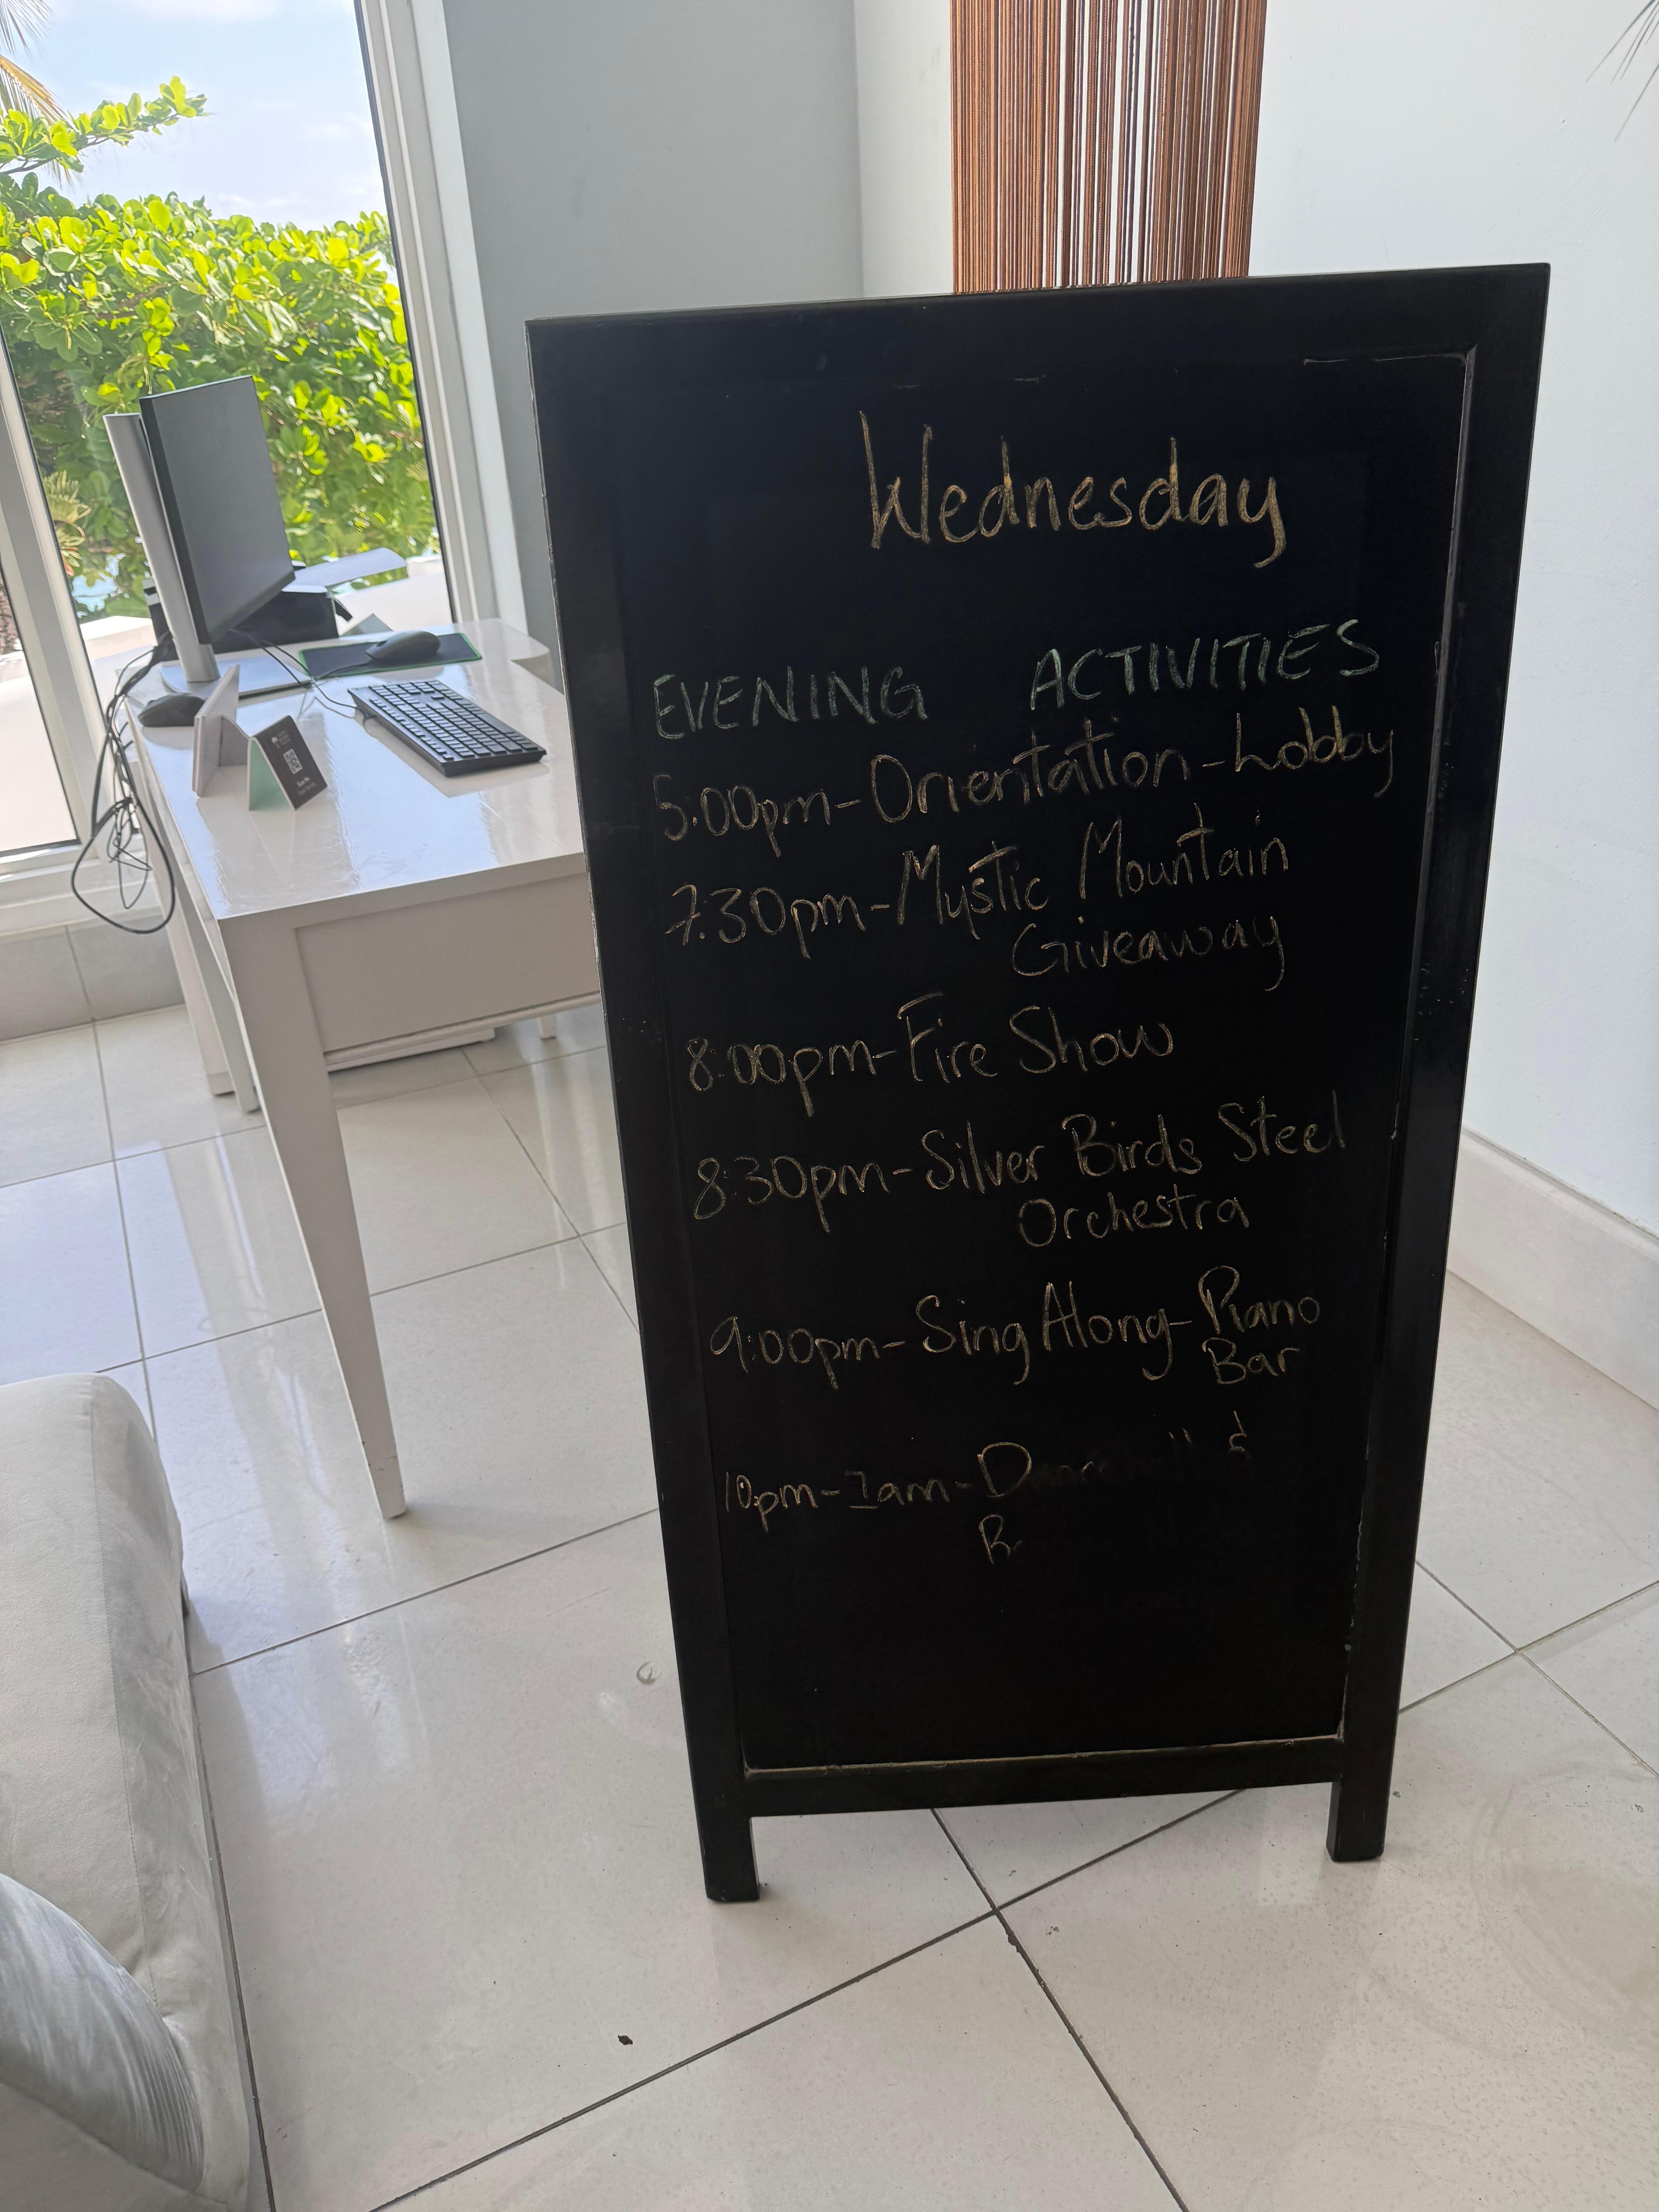 Wednesday
EVENING ACTIVITIES
5:00pm-Orientation-Lobby
7:30pm-Mystic Mountain
Giveaway
8:00pm-Fire Show
8:30pm-Silver Birds Steel
Orchestra
9:00pm-Sing Along-Piano
Bar
10pm-1am-